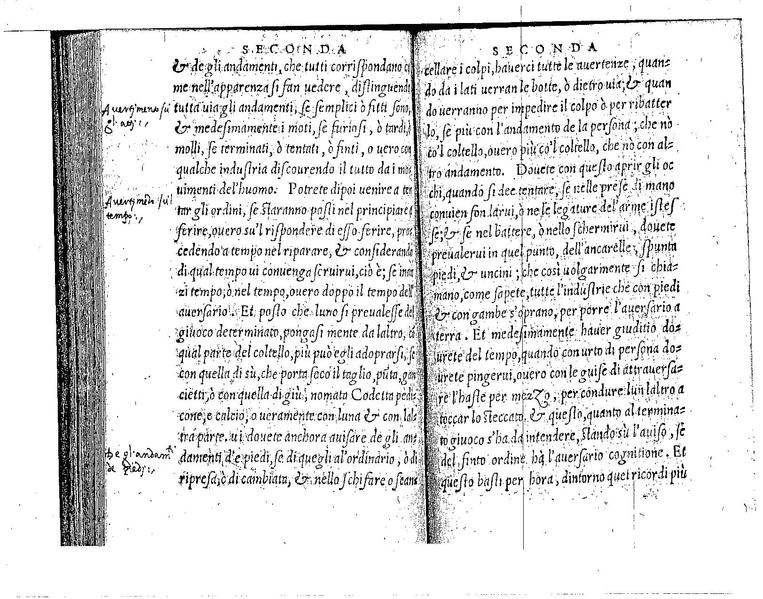 SECONDA
& de gli andamenti, che tutti corrispondano
me nell'apparenza si fan uedere, distinguendo
tutta uia gli andamenti, se semplici ò fitti sono,
& medesimamente i moti, se furiosi, ò tardi,
molli, se terminati, ò tentati, ò finti, o uero con
qualche industria discorrendo il tutto da i mo
uimenti del'huomo. Potrete dipoi uenire a
tar gli ordini, se staranno posti nel principiare
ferire, ouero su'l rispondere di esso ferire, pro
cedendo a tempo nel riparare, & considerando
di qual tempo ui conuenga seruirui, ciò è; se inna
zi tempo; ò nel tempo, ouero doppò il tempo dell'
auersario. Et posto che luno si preualesse del
giuoco determinato, pongasi mente da laltro,
qual parte del coltello, più può egli adoprarsi; se
con quella di sù, che porta seco il taglio, pūta,
cietti, ò con quella di giù, nomata Codetta
cone, e calcio, o ueramente con luna & con
tra parte. ui douete anchora auisare de gli
damenti d'e piedi, se di quegli al'ordinario, ò di
ripresa, ò di cambiata, & nello schifare o
Auertimento su
gl' atti
Auertimēto su'l
tempo
De gl'andam.ti
de piedi
SECONDA
cellare i colpi, hauerci tutte le auertenze, quan-
do da i lati uerran le botte, ò dietro uia; & quan
do uerranno per impedire il colpo ò per ribatter
lo, se più con l'andamento de la persona; che nò
co'l coltello, ouero più co'l coltello, che nò con al-
tro andamento. Douete con questo aprir gli oc
chi, quando si dee tentare, se nelle prese di mano
conuien fon larui, ò ne le legature del'arme istes
se; & se nel battere, ò nello schermirui, douete
preualerui in quel punto, dell'ancarelle, spunta
piedi, & uncini; che così uolgarmente si chia-
mano, come sapete, tutte l'industrie che con piedi
& con gambe s'oprano, per porre l'auersario a
terra. Et medesimamente hauer giuditio do-
urete del tempo, quando con urto di persona do-
urete pingerui, ouero con le guise di attrauersa-
re l'haste per mezzo, per condure lun laltro a
toccar lo steccato. & questo, quanto al termina-
to giuoco s'ha da intendere, stando sù l'auiso, se
del finto ordine hà l'auersario cognitione. Et
questo basti per hora, dintorno quei ricordi più